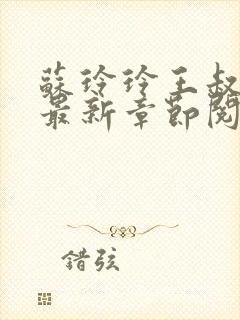 蘇玲玲王叔
最新章節閱
錯弦